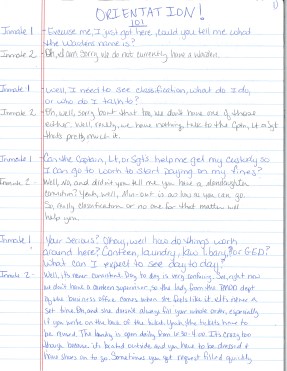 ORIENTATION!
101
Inmate 1 - Excuse me, I just got here, could you tell me what
the Wardens name is?
Inmate 2 - Oh, I am sorry we do not currently have a Warden.
Inmate 1 - Well, I need to see classification, what do I do,
or who do I talk to?
Inmate 2 - Oh, well, sorry bout that too, we don't have one of those
either. Well, really, we have nothing, talk to the Cptn, Lt. or Sgt.
that's pretty much it.
Inmate 1 - Can the Captain, Lt, or Sgts help me get my custody so
I can go to work to start paying on my fines?
Inmate 2 - Well, No, and didn't you tell me you have a
conviction? Yeah, well, is as low as you can go.
So, really classification or no one for that matter will
help you.
Inmate 1 - Your serious? Okay, well how do things work
around here? Canteen, laundry, law library, or GED?
What can I expect to see day to day?
Inmate 2 - Well, its never consistent. Day to day is very So, right now
we don't have a canteen supervisor, so the lady from the
the business office comes when she feels like it. It's never a
set time and she doesn't always fill your whole order, especially
if you write on the back of the ticket. the tickets have to
be The laundry is open daily from It's crazy too
though because it's located outside and you have to be dressed &
have shoes on to go. Sometimes you get request filled quickly